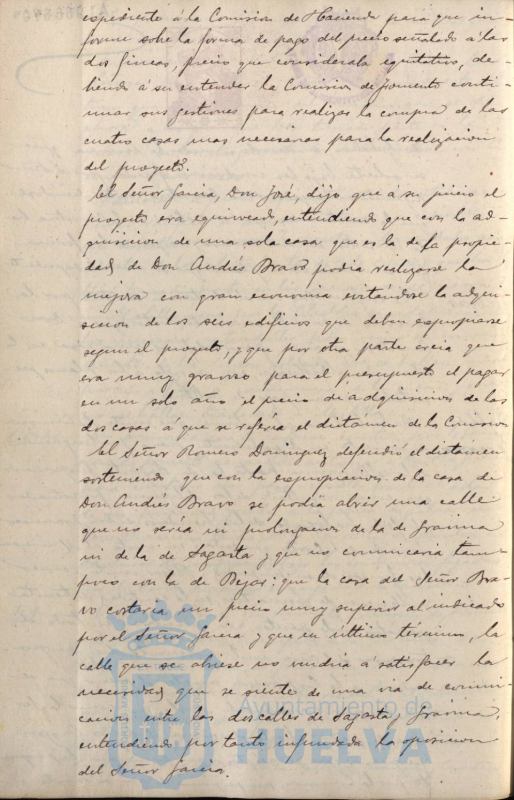 espediente á la Comision de Hacienda para que in-
forme sobre la forma de pago del precio señalado á las
dos fincas, precio que consideraba equitativo, de-
biendo á su entender la Comision de fomento conti-
nuar sus gestiones para realizar la compra de las
cuatro casas mas necesarias para la realizacion
del proyecto.
El Señor Garcia, Don José, dijo que á su juicio el
proyecto era equivocado, entendiendo que con la ad-
quisicion de una sola casa que es la de la propie-
dad de Don Andrés Bravo podia realizarse la
mejora con gran economia evitándose la adqui-
sicion de los seis edificios que deben espropiarse
segun el proyecto, y que por otra parte creia que
era muy gravoso para el presupuesto el pagar
en un solo año el precio de adquisicion de las
dos casas á que se referia el dictámen de la Comision
El Señor Romero Dominguez defendió el dictámen
sosteniendo que con la espropiacion de la casa de
Don Andrés Bravo se podia abrir una calle
que no seria ni prolongacion de la de Gravina
ni de la de Sagasta y que no comunicaria tam-
poco con la de Bejar: que la casa del Señor Bra-
vo costaria un precio muy superior al indicado
por el Señor Garcia y que en último término, la
calle que se abriese no vendria á satisfacer la
necesidad que se siente de una via de comuni-
cacion entre las dos calles de Sagasta y Gravina,
entendiendo por tanto infundada la oposicion
del Señor Garcia.
Ayuntamiento de
HUELVA